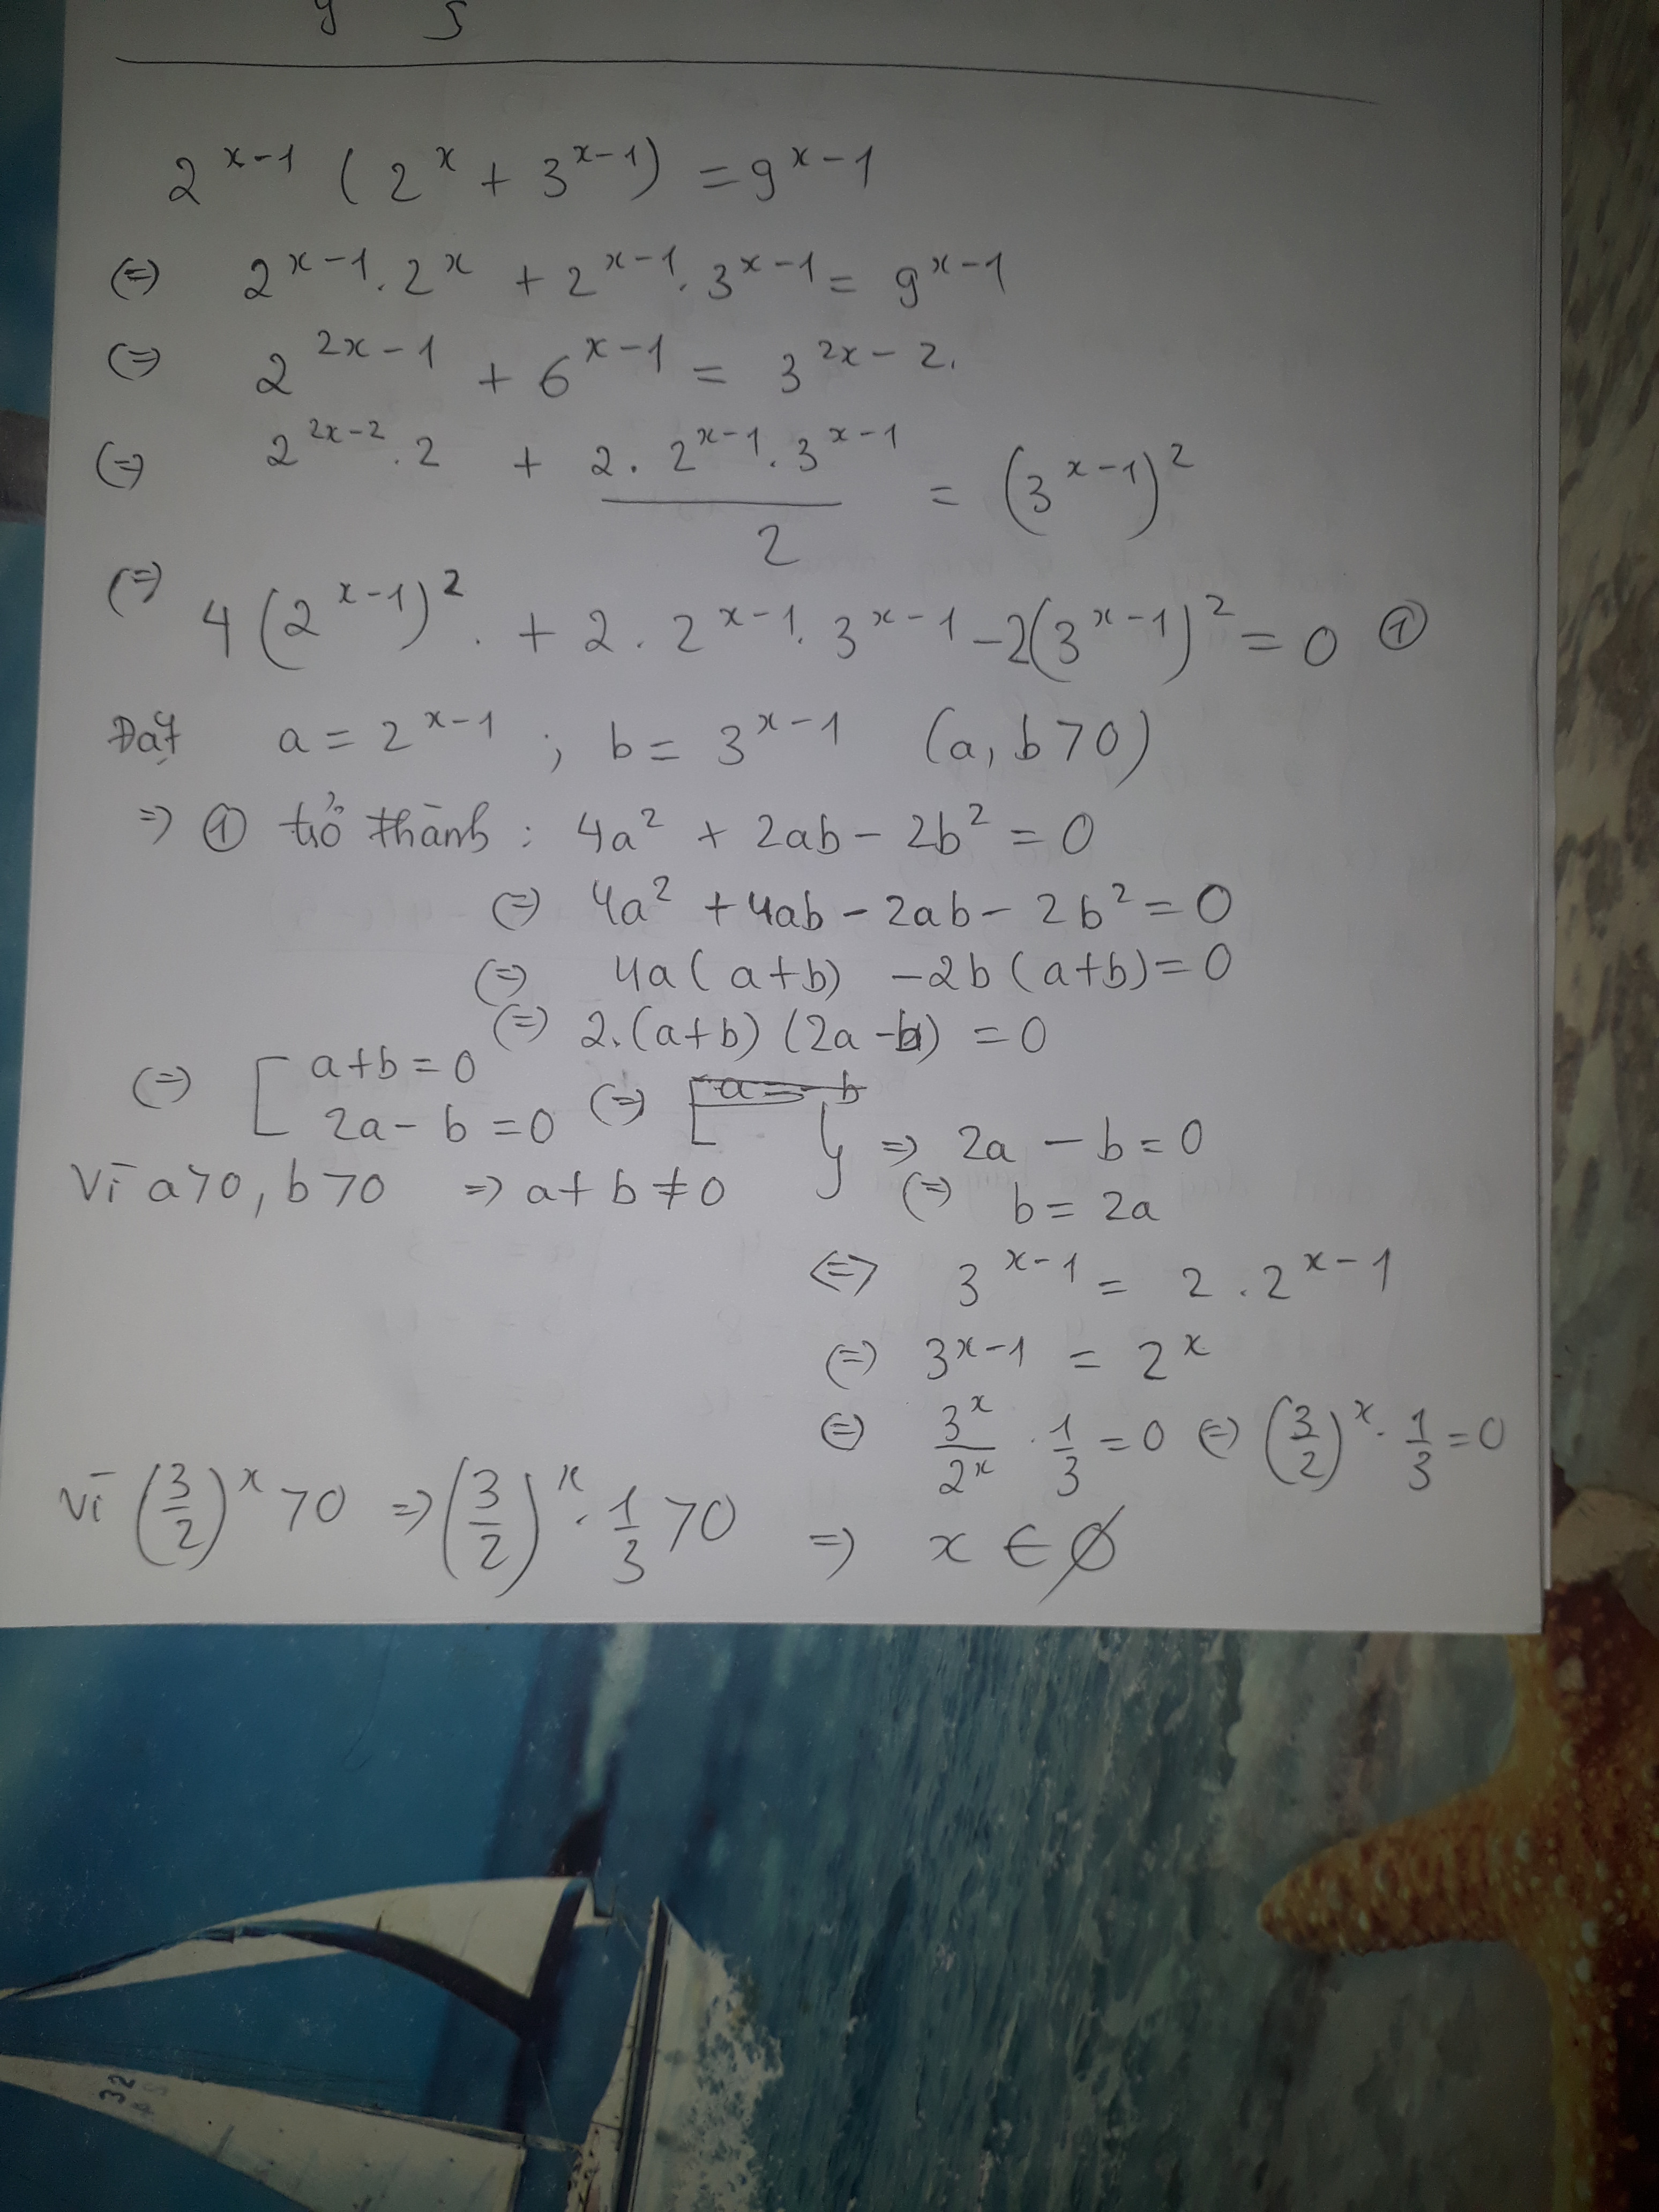 2^{x-1} (2^x + 3^{x-1}) = 9^{x-1}
(=) 2^{x-1}. 2^x + 2^{x-1}. 3^{x-1} = 9^{x-1}
(=) 2^{2x-1} + 6^{x-1} = 3^{2x-2}.
(=) 2^{2x-2}.2 + \frac{2. 2^{x-1}. 3^{x-1}}{2} = (3^{x-1})^2
(=) 4(2^{x-1})^2. + 2. 2^{x-1}. 3^{x-1} - 2(3^{x-1})^2 = 0 ①
Đặt a = 2^{x-1} ; b = 3^{x-1} (a, b > 0)
=> ① trở thành : 4a^2 + 2ab - 2b^2 = 0
(=) 4a^2 + 4ab - 2ab - 2b^2 = 0
(=) 4a(a+b) - 2b(a+b) = 0
(=) 2.(a+b)(2a-b) = 0
(=) [ a+b = 0
2a - b = 0 (=) [
Vì a>0, b>0 => a+b ≠ 0 } => 2a - b = 0
(=) b = 2a
<=> 3^{x-1} = 2. 2^{x-1}
(=) 3^{x-1} = 2^x
(=) \frac{3^x}{2^x} . \frac{1}{3} = 0 (=) (\frac{3}{2})^x . \frac{1}{3} = 0
Vì (\frac{3}{2})^x > 0 => (\frac{3}{2})^x . \frac{1}{3} > 0 => x ∈ ∅
32